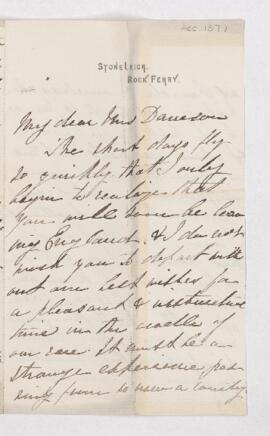 Acc. 1377
STONELEIGH.
ROCK FERRY.
My dear Mrs Dawson
The short days fly
so quickly that I only
begin to realize that
you will soon be leav
ing England. & I do not
wish you to depart with
out our best wishes for
a pleasant & instructive
time in the cradle of
our race. It must be a
strange experience pas
sing from so new a country